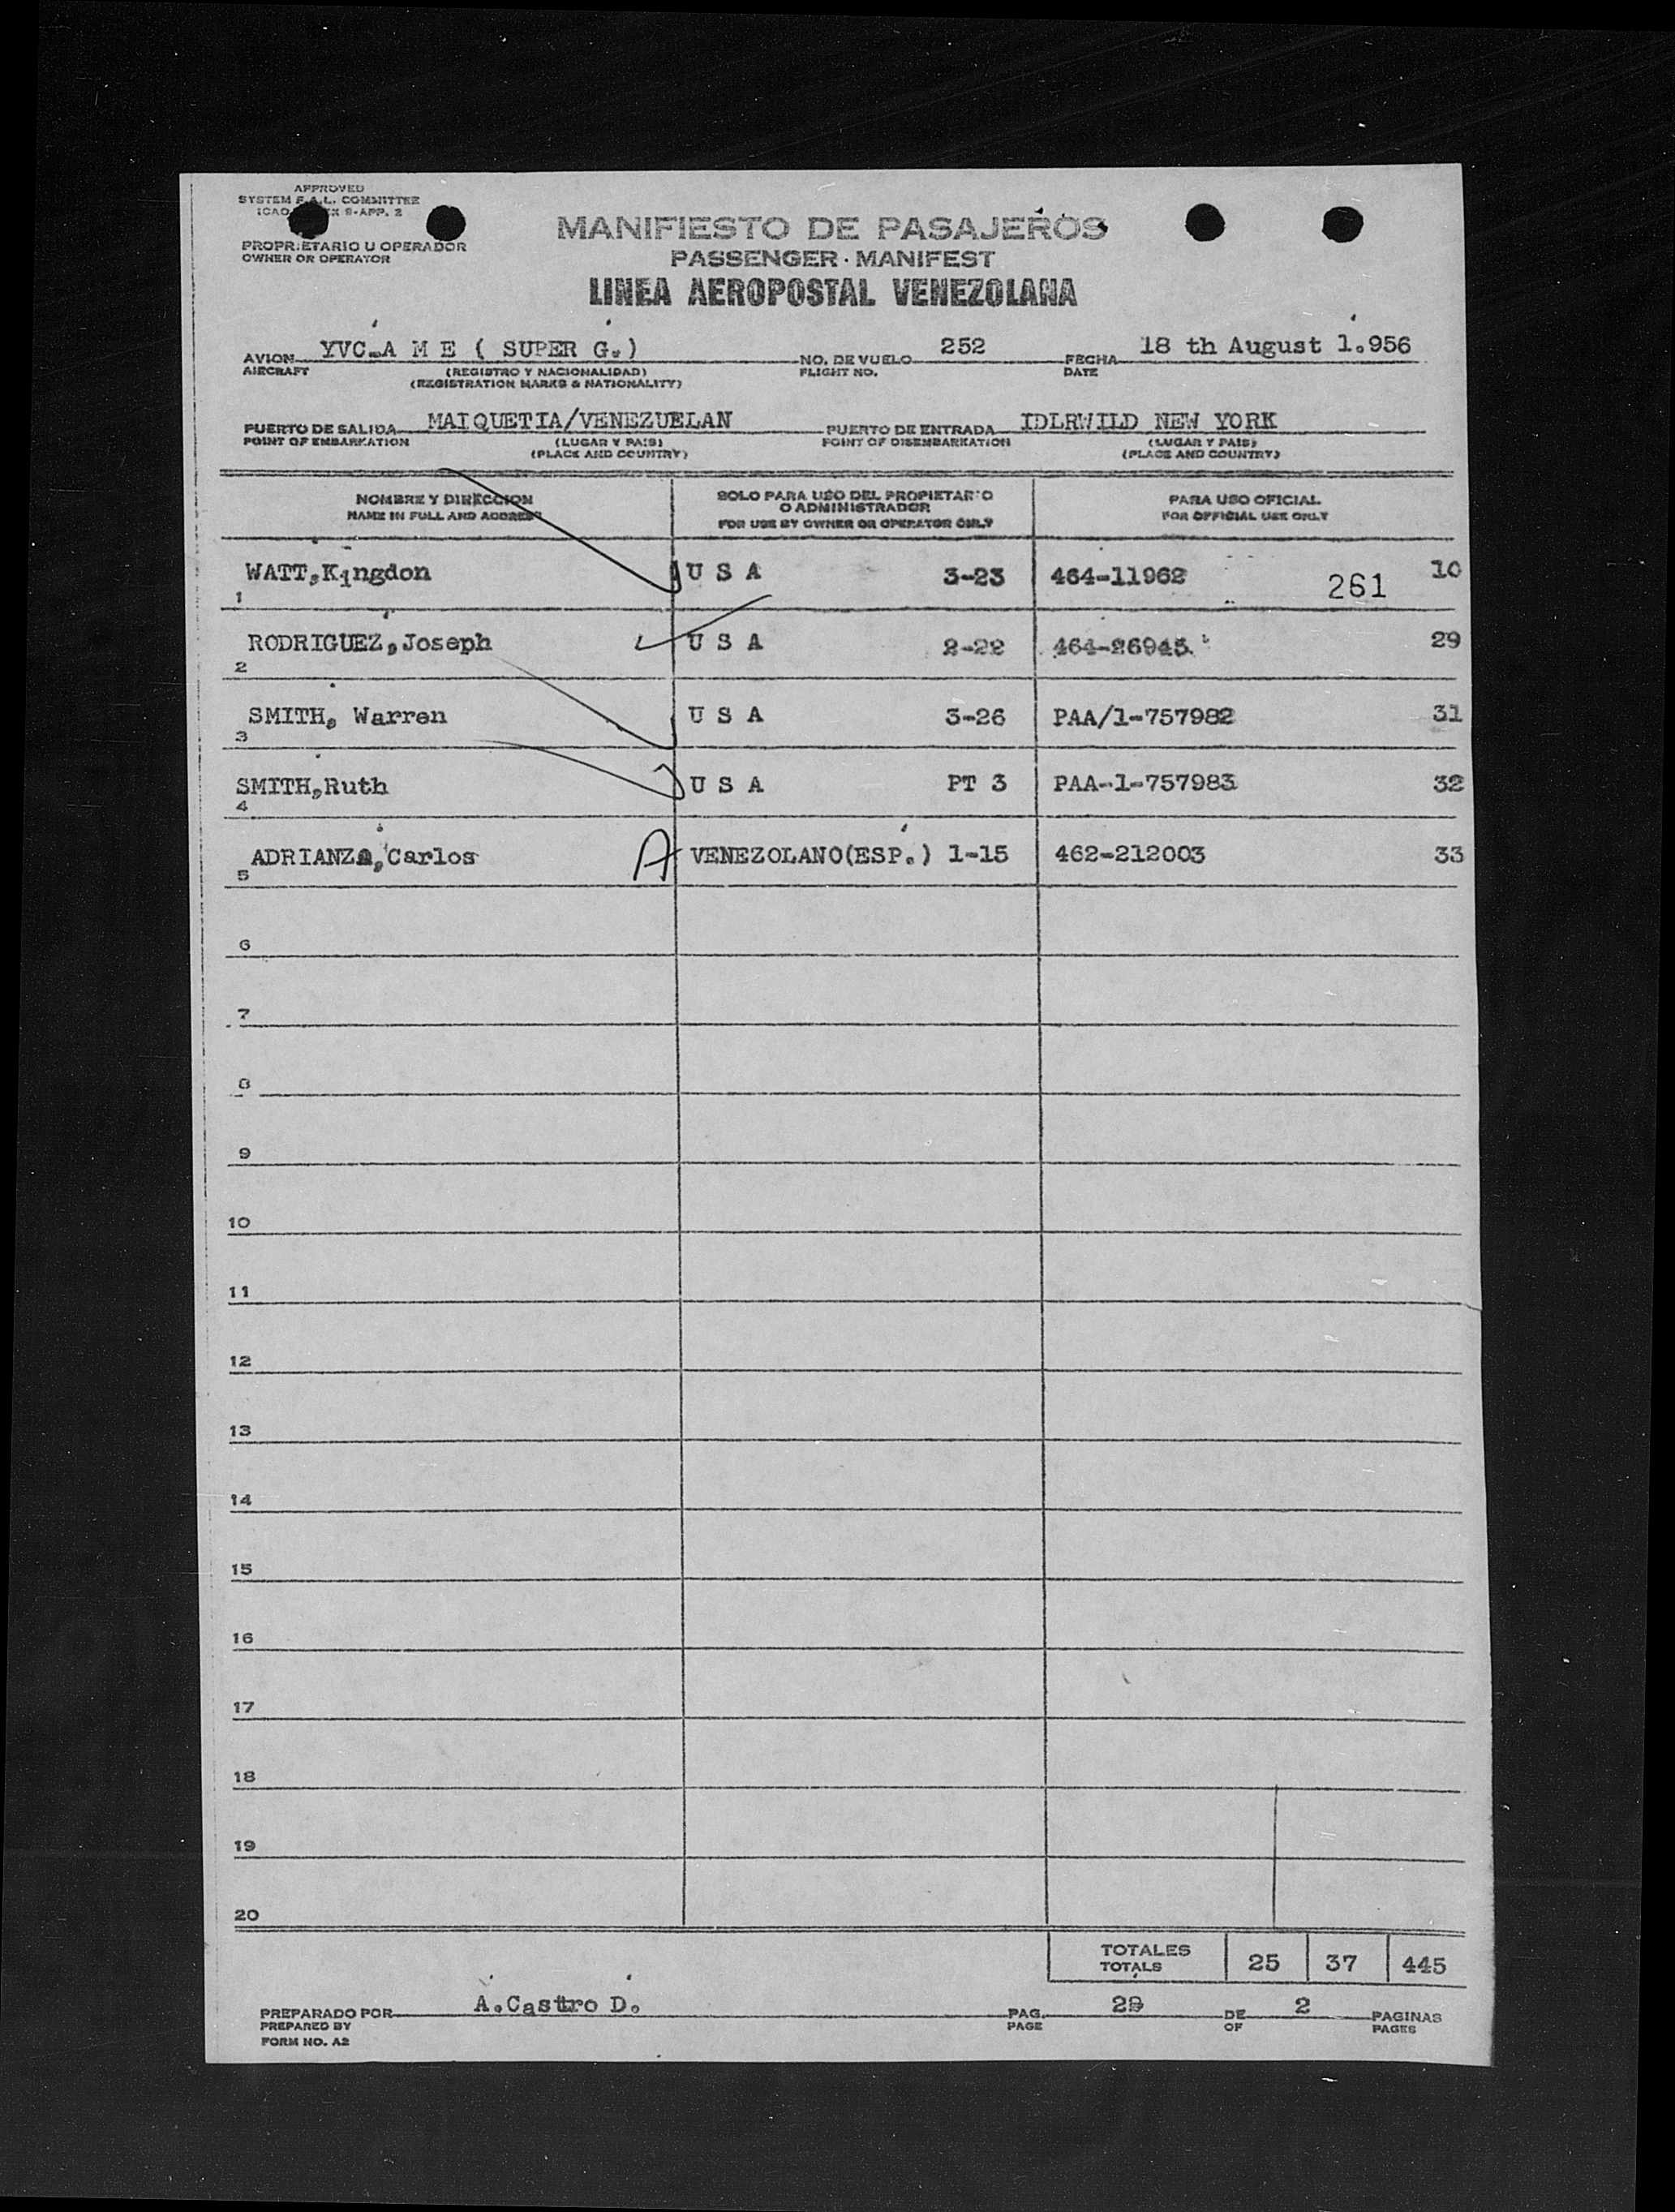 APPROVED
SYSTEM F.A.L. COMMITTEE
ICAO 9-APP. 2
PROPRIETARIO U OPERADOR
OWNER OR OPERATOR
MANIFIESTO DE PASAJEROS
PASSENGER · MANIFEST
LINEA AEROPOSTAL VENEZOLANA
AVION YVC-A M E ( SUPER G.) NO. DE VUELO 252 FECHA 18 th August 1.956
AIRCRAFT (REGISTRO Y NACIONALIDAD) FLIGHT NO. DATE
(REGISTRATION MARKS & NATIONALITY)
PUERTO DE SALIDA MAIQUETIA/VENEZUELAN PUERTO DE ENTRADA IDLRWILD NEW YORK
POINT OF EMBARKATION (LUGAR Y PAIS) POINT OF DISEMBARKATION (LUGAR Y PAIS)
(PLACE AND COUNTRY) (PLACE AND COUNTRY)
NOMBRE Y DIRECCION
NAME IN FULL AND ADDRESS
SOLO PARA USO DEL PROPIETARIO
O ADMINISTRADOR
FOR USE BY OWNER OR OPERATOR ONLY
PARA USO OFICIAL
FOR OFFICIAL USE ONLY
WATT,Kingdon U S A 3-23 464-11962 261 10
1
RODRIGUEZ,Joseph U S A 2-22 464-26945 29
2
SMITH, Warren U S A 3-26 PAA/1-757982 31
3
SMITH,Ruth U S A PT 3 PAA-1-757983 32
4
ADRIANZA,Carlos A VENEZOLANO(ESP.) 1-15 462-212003 33
5
6
7
8
9
10
11
12
13
14
15
16
17
18
19
20
TOTALES 25 37 445
TOTALS
PREPARADO POR A.Castro D. PAG. DE 2 PAGINAS
PREPARED BY PAGE OF PAGES
FORM NO. A2